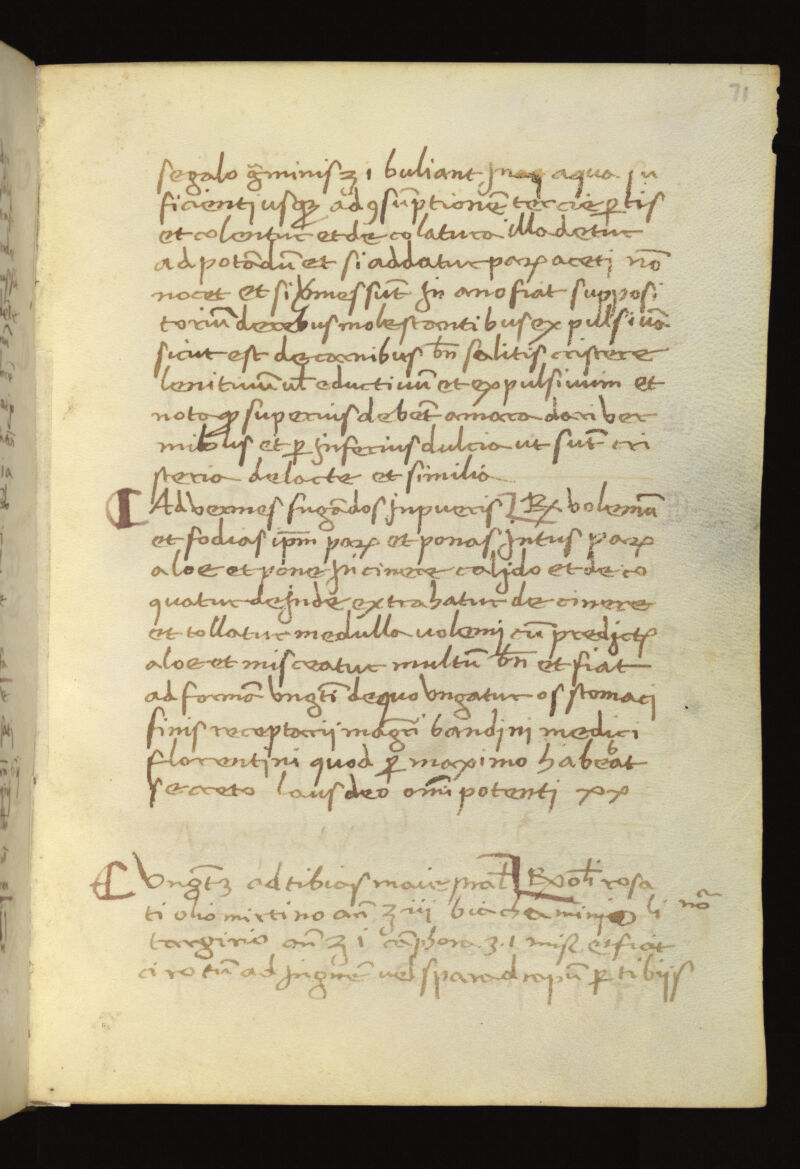 71
segalo gr̄minis ʒ i buliant in aqua su
ficienti usqꝫ ad ꝯsūptionē tercie ꝑtis
et colentur et de colatura illa detur
ad potādū et si addatur parꝫ aceti nō
nocet et si ṽmes sūt in ano fiat supposi
toriū de rebus molestantibus expulsiuā
sicut est de carnibus bn̄ salitis cristere
lenitiuū ul̄ eductiuū et expulsiuum et
nota qꝫ superius debēt amara dari ver
mibus et ꝑ inferius dulcia ut sūt cri
steria de lacte et similia
Ad vermes fugādos in pueris ℞ volemū
et fodias ip̄m parꝫ et ponas intus parꝫ
aloe et pone in cinere calido et deco
quatur deinde extrahatur de cinere
et tollatur medulla uolemi cū predictꝫ
aloe et misceatur multū bn̄ et fiat
ad formā vngtī de quo vngatur os stomaci
finis receptarii magrī bandini medici
florentini quod ꝑ maximo habebat
secreto laus deo om̄ipotenti xx
Vngtꝫ ad tibias ℞ oli rosa
ti olio mirtino an̄ ʒ iii mini li nō
targirio an̄ ʒ i cāphora ʒ i misꝫ et fiat
cirotū ad ingnē uel sparadrapū ꝑ tibiis